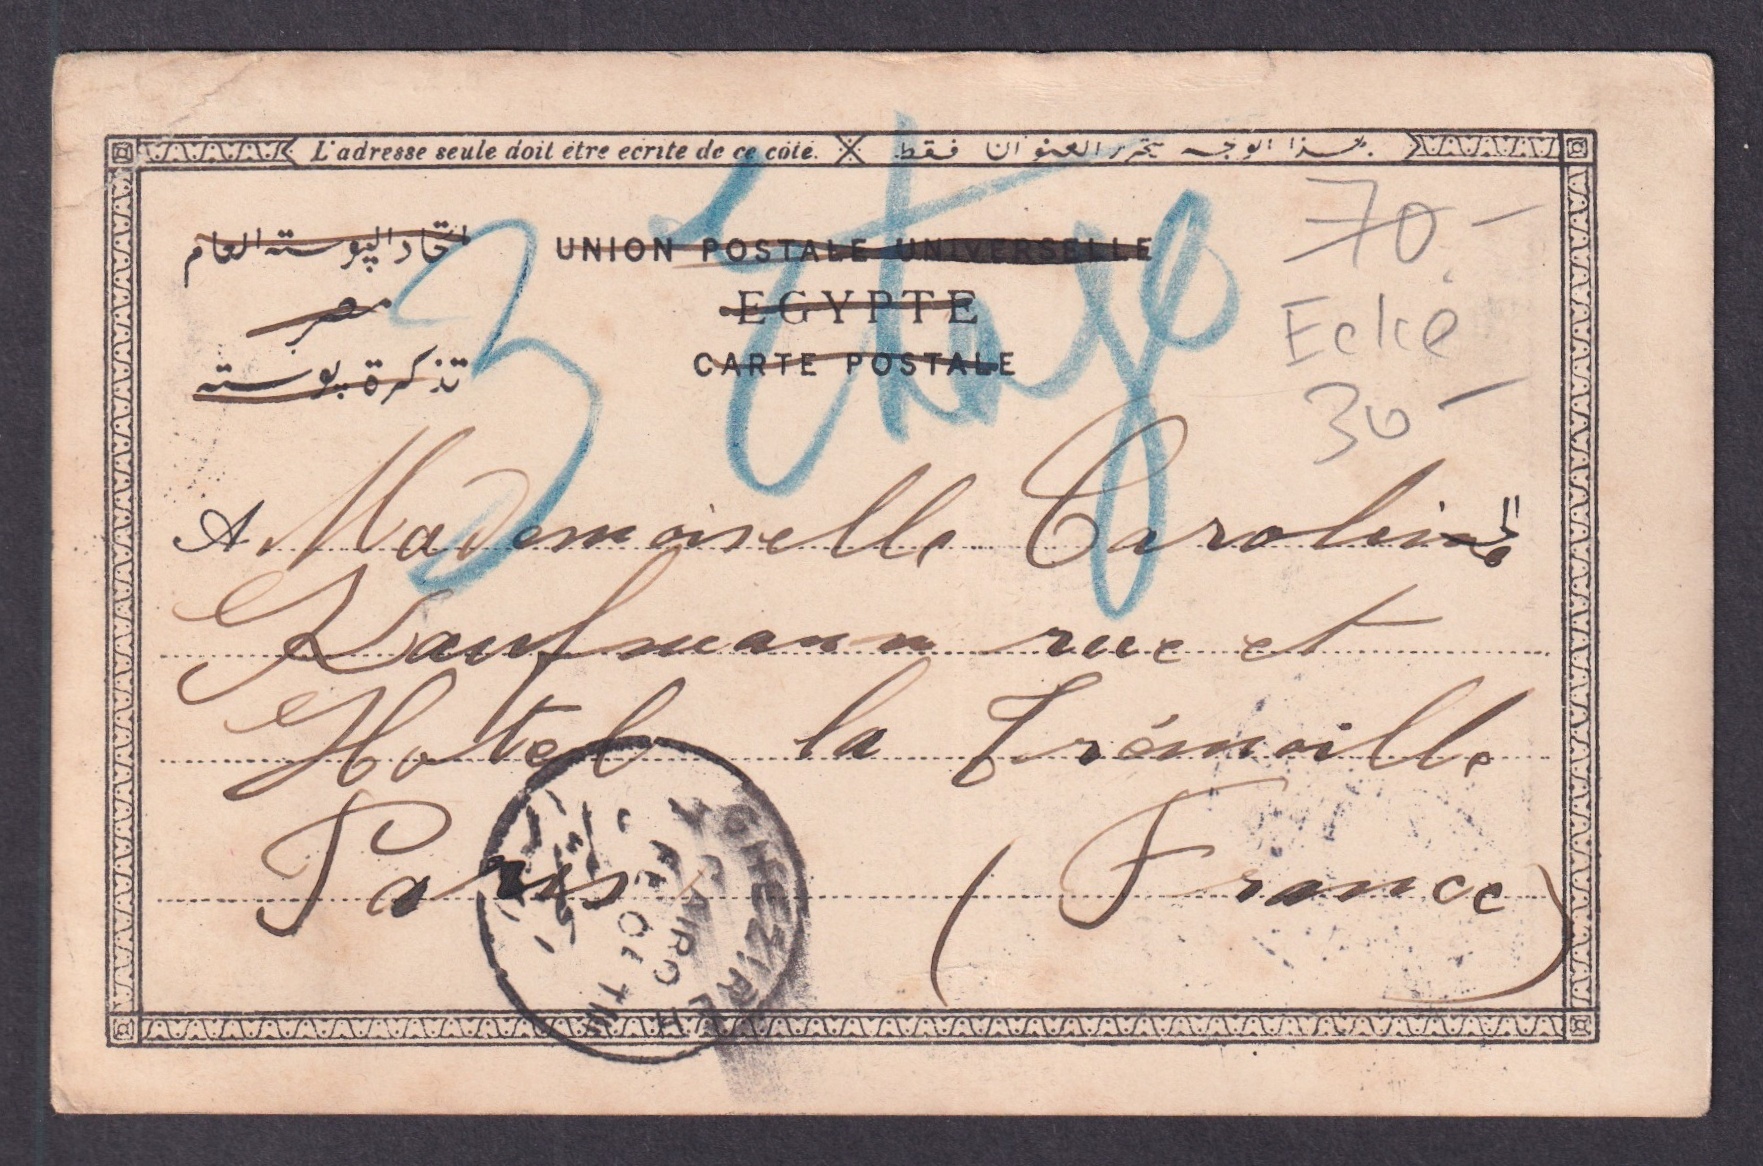 L'adresse seule doit être ecrite de ce côté. بهـذا الوجـه يحرر العنوان فـقط
اتحاد البوسته العام
مصر
تذكرة بوسته
UNION POSTALE UNIVERSELLE
EGYPTE
CARTE POSTALE
3 Etage
70 -
Ecke
30 -
A Mademoiselle Caroline
Kaufmann rue et
Hotel la Trémoille
Paris (France)
GHEZIREH
CAIRO
FE 01